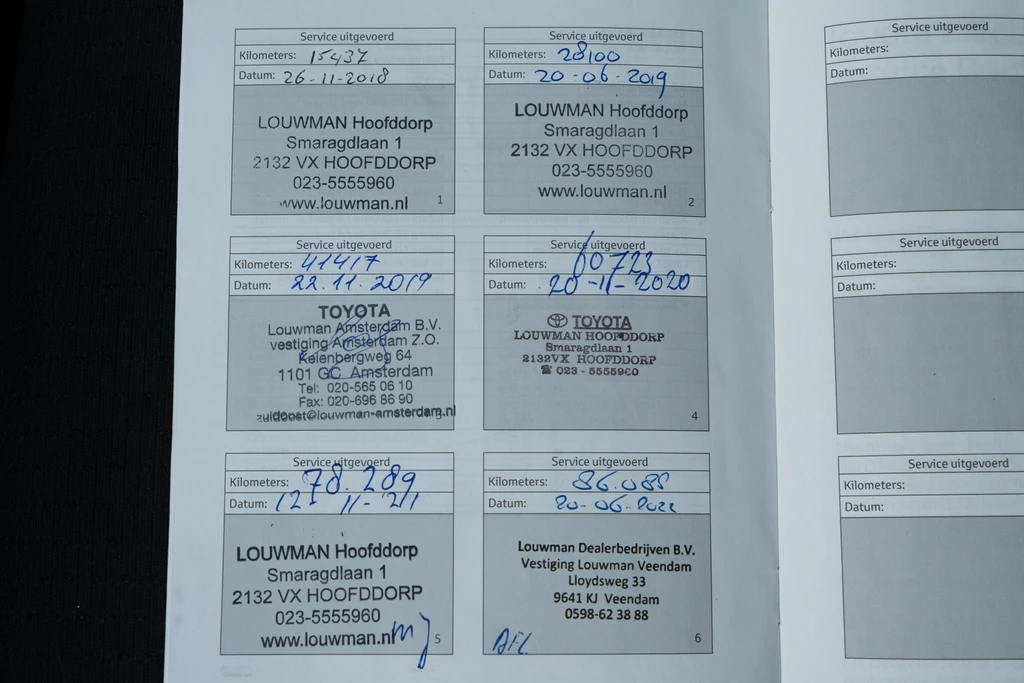 Service uitgevoerd
Kilometers: 15437
Datum: 26-11-2018
LOUWMAN Hoofddorp
Smaragdlaan 1
2132 VX HOOFDDORP
023-5555960
www.louwman.nl
1
Service uitgevoerd
Kilometers: 28100
Datum: 20-06-2019
LOUWMAN Hoofddorp
Smaragdlaan 1
2132 VX HOOFDDORP
023-5555960
www.louwman.nl
2
Service uitgevoerd
Kilometers: 41417
Datum: 22.11.2019
TOYOTA
Louwman Amsterdam B.V.
vestiging Amsterdam Z.O.
Keienbergweg 64
1101 GC Amsterdam
Tel: 020-565 06 10
Fax: 020-696 86 90
zuidoost@louwman-amsterdam.nl
Service uitgevoerd
Kilometers: 60723
Datum: 20-11-2020
TOYOTA
LOUWMAN HOOFDDORP
Smaragdlaan 1
2132VX HOOFDDORP
☎ 023 - 5555960
4
Service uitgevoerd
Kilometers: 78.289
Datum: 12-11-'21
LOUWMAN Hoofddorp
Smaragdlaan 1
2132 VX HOOFDDORP
023-5555960
www.louwman.nl
5
Service uitgevoerd
Kilometers: 86.088
Datum: 20-06-2022
Louwman Dealerbedrijven B.V.
Vestiging Louwman Veendam
Lloydsweg 33
9641 KJ Veendam
0598-62 38 88
6
Service uitgevoerd
Kilometers:
Datum:
Service uitgevoerd
Kilometers:
Datum:
Service uitgevoerd
Kilometers:
Datum: